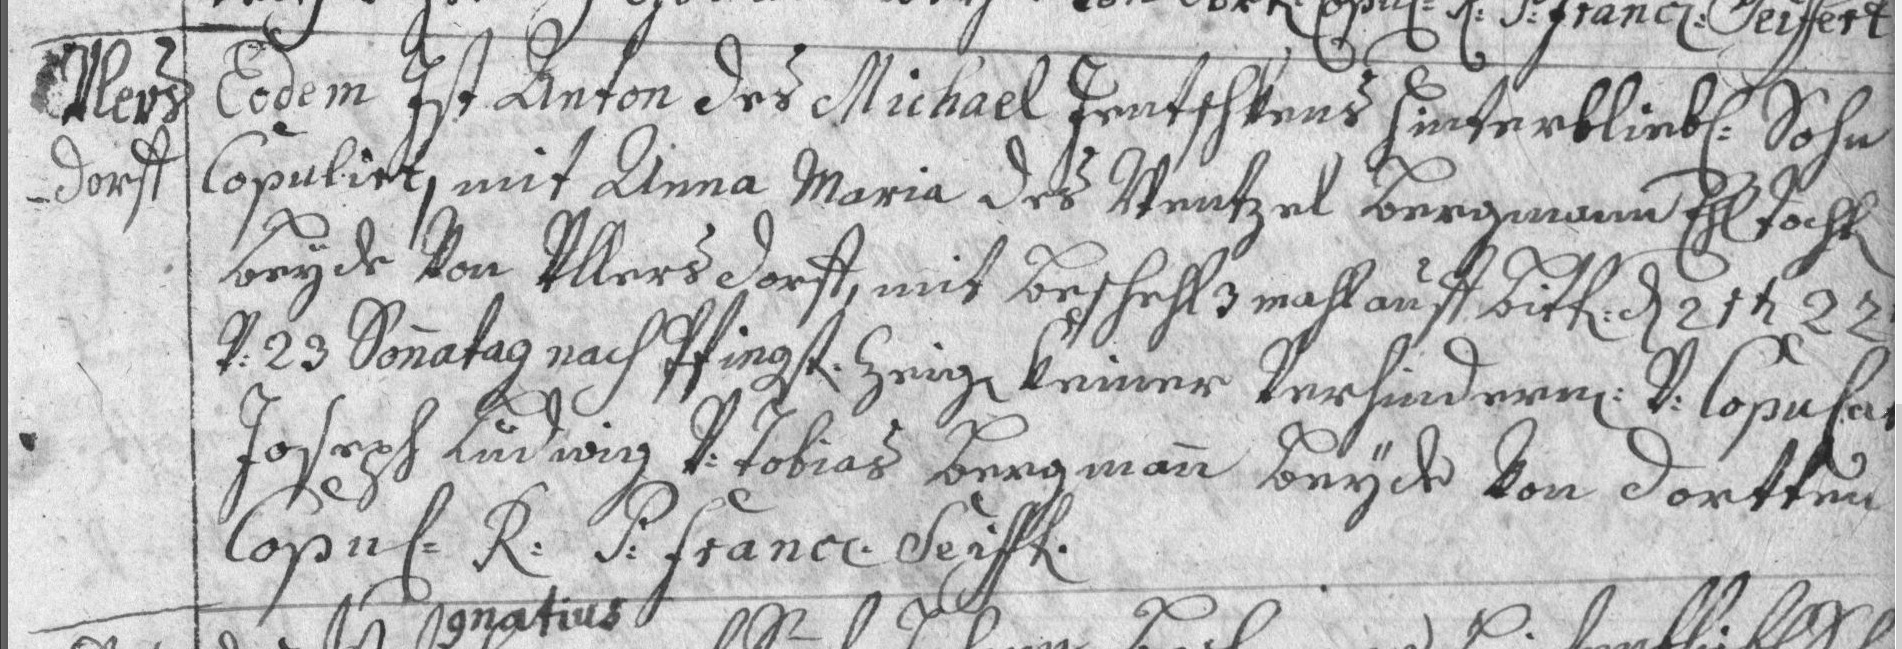 Copul: R: P: Franc: Seiffert
Ullers Eodem Ist Anton des Michael Jentschkens hinterblieb: Sohn
-dorff Copulirt, mit Anna Maria des Wentzel Bergmann Ehl Tocht
beÿde von Ullersdorff, mit beschehl 3 mahl auff bitt: d 21t 22
V: 23 Soñatag nach Pfingst. Zeig keiner verhindern: V: Copulat
Joseph Ludwig V: Tobias Bergmañ beÿde von dortten
Copul: R: P: Franc: Seifft.
Ignatius